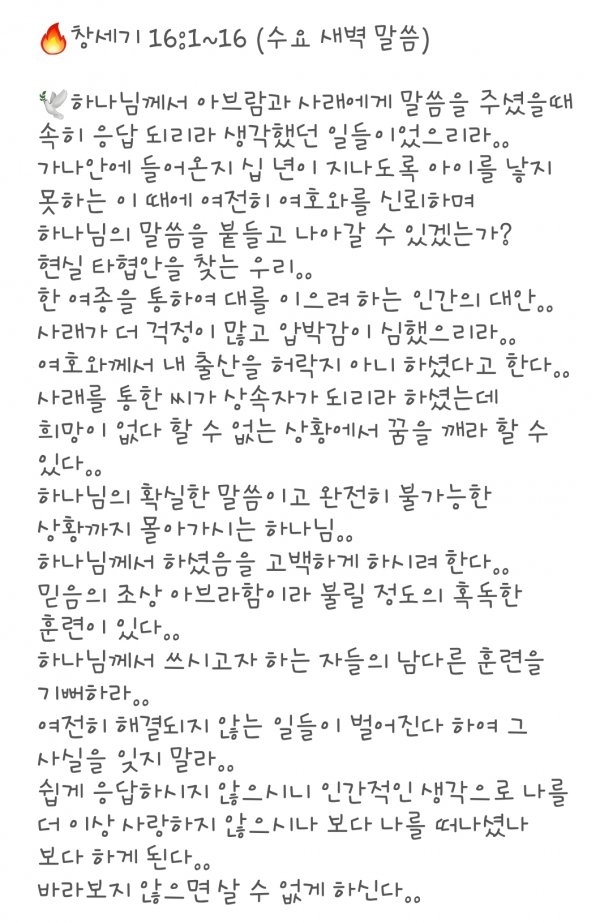 🔥창세기 16:1~16 (수요 새벽 말씀)
🕊하나님께서 아브람과 사래에게 말씀을 주셨을때
속히 응답 되리라 생각했던 일들이었으리라..
가나안에 들어온지 십 년이 지나도록 아이를 낳지
못하는 이 때에 여전히 여호와를 신뢰하며
하나님의 말씀을 붙들고 나아갈 수 있겠는가?
현실 타협안을 찾는 우리..
한 여종을 통하여 대를 이으려 하는 인간의 대안..
사래가 더 걱정이 많고 압박감이 심했으리라..
여호와께서 내 출산을 허락지 아니 하셨다고 한다..
사래를 통한 씨가 상속자가 되리라 하셨는데
희망이 없다 할 수 없는 상황에서 꿈을 깨라 할 수
있다..
하나님의 확실한 말씀이고 완전히 불가능한
상황까지 몰아가시는 하나님..
하나님께서 하셨음을 고백하게 하시려 한다..
믿음의 조상 아브라함이라 불릴 정도의 혹독한
훈련이 있다..
하나님께서 쓰시고자 하는 자들의 남다른 훈련을
기뻐하라..
여전히 해결되지 않는 일들이 벌어진다 하여 그
사실을 잊지 말라..
쉽게 응답하시지 않으시니 인간적인 생각으로 나를
더 이상 사랑하지 않으시나 보다 나를 떠나셨나
보다 하게 된다..
바라보지 않으면 살 수 없게 하신다..